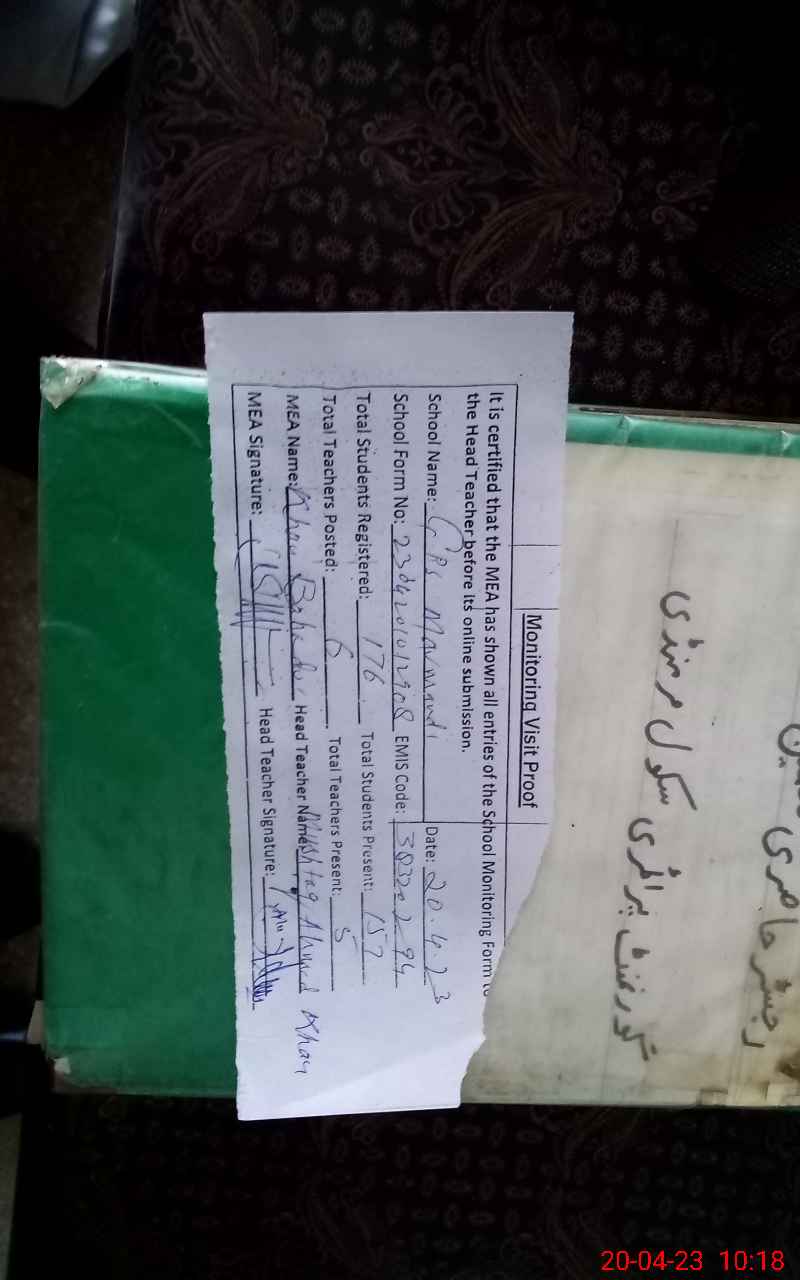 Monitoring Visit Proof
It is certified that the MEA has shown all entries of the School Monitoring Form to
the Head Teacher before its online submission.
School Name: GPS Marmandi Date: 20.4.23
School Form No: EMIS Code:
Total Students Registered: 176 Total Students Present: 157
Total Teachers Posted: 6 Total Teachers Present: 5
MEA Name: Khan Bahadur Head Teacher Name: Mushtaq Ahmad Khan
MEA Signature: Head Teacher Signature:
رجسٹر حاضری
گورنمنٹ پرائمری سکول مرمنڈی
20-04-23 10:18